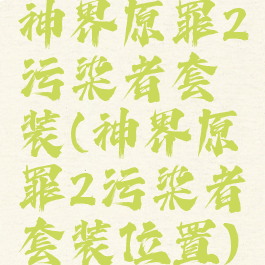 神界原罪2
污染者套
装(神界原
罪2污染者
套装位置)